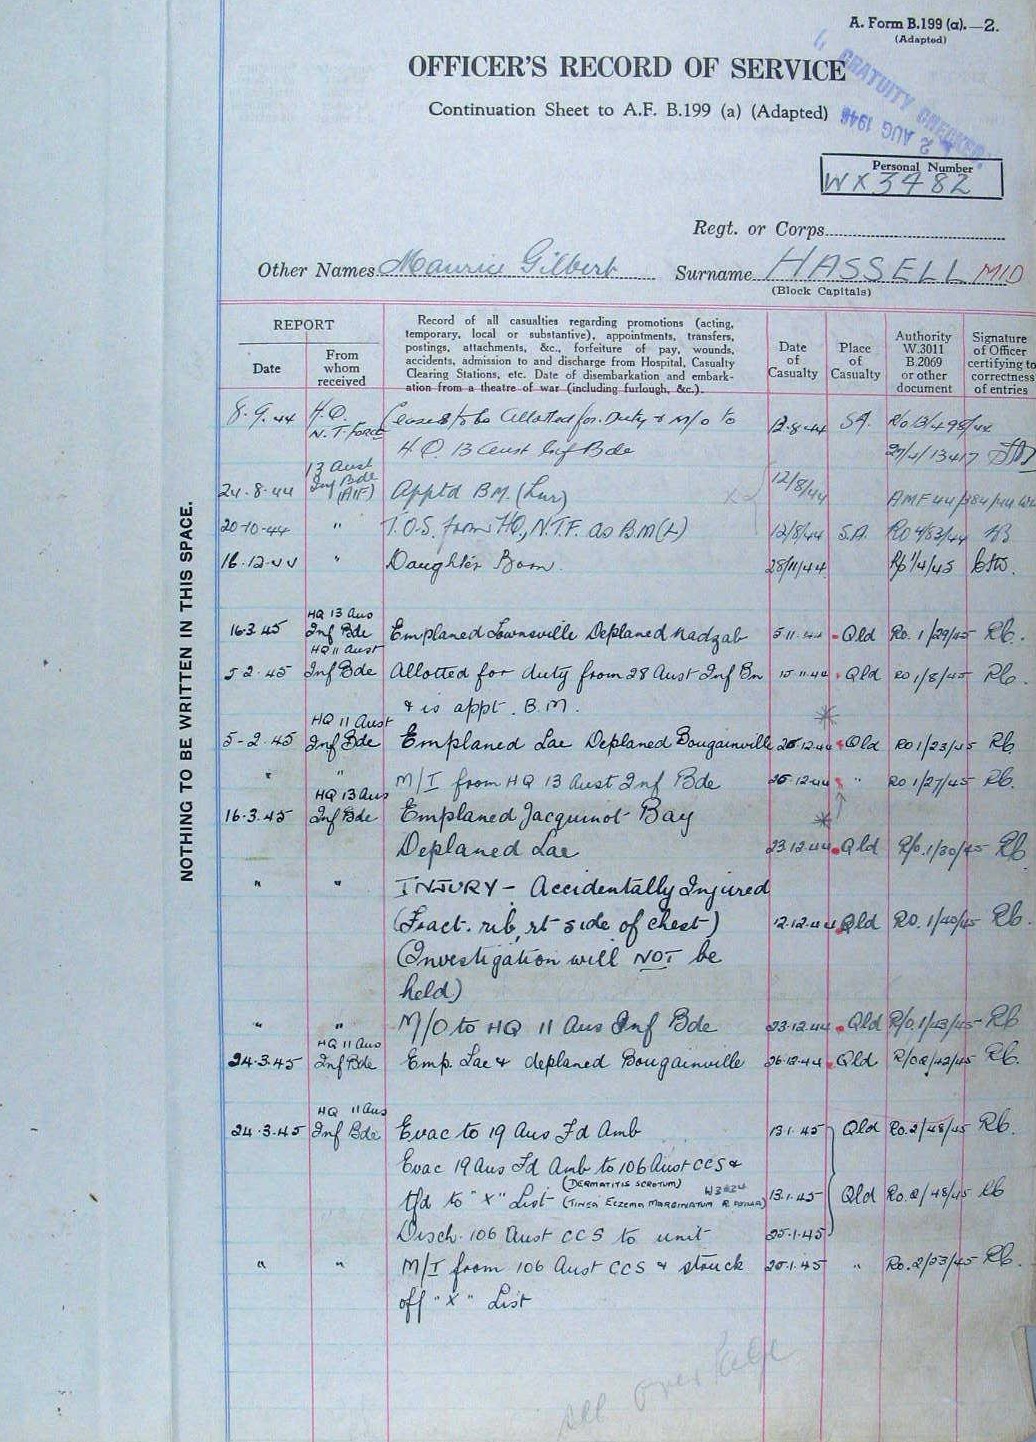 A. Form B.199 (a).—2.
(Adapted)
OFFICER'S RECORD OF SERVICE
Continuation Sheet to A.F. B.199 (a) (Adapted)
GRATUITY CHECKED
2 AUG 1946
Personal Number
WX3482
Regt. or Corps
Other Names Maurice Gilbert Surname HASSELL MID
(Block Capitals)
REPORT
Date
From whom received
Record of all casualties regarding promotions (acting,
temporary, local or substantive), appointments, transfers,
postings, attachments, &c., forfeiture of pay, wounds,
accidents, admission to and discharge from Hospital, Casualty
Clearing Stations, etc. Date of disembarkation and embark-
ation from a theatre of war (including furlough, &c.).
Date of Casualty
Place of Casualty
Authority W.3011 B.2069 or other document
Signature of Officer certifying to correctness of entries
NOTHING TO BE WRITTEN IN THIS SPACE.
8.9.44 H.Q. N.T. Force Ceases to be Allotted for Duty & M/O to 12.8.44 SA.
H.Q. 13 Aust Inf Bde
24.8.44 13 Aust Inf Bde (AIF) Apptd B.M. 12/8/44
20-10-44 " T.O.S. from HQ, N.T.F. as B.M (L) 12/8/44 S.A.
16.12.44 " Daughter Born. 28/11/44
16.3.45 HQ 13 Aus Inf Bde Emplaned Townsville Deplaned Nadzab 5.11.44 Qld Ro. 1/29/45 Rb.
5.2.45 HQ 11 Aust Inf Bde Allotted for duty from 28 Aust Inf Bn 15.11.44 Qld Ro 1/8/45 Rb.
& is appt. B.M.
5-2.45 HQ 11 Aust Inf Bde Emplaned Lae Deplaned Bougainville 26.12.44 Qld Ro 1/23/45 Rb.
" " M/I from HQ 13 Aust Inf Bde 26.12.44 " Ro 1/27/45 Rb.
16.3.45 HQ 13 Aus Inf Bde Emplaned Jacquinot Bay
Deplaned Lae 23.12.44 Qld R/o. 1/30/45 Rb
" " INJURY - Accidentally Injured
(Fract. rib, rt side of chest) 12.12.44 Qld Ro. 1/40/45 Rb.
(Investigation will NOT be
held)
" " M/O to HQ 11 Aus Inf Bde 23.12.44 Qld R/o. 1/43/45 Rb
24.3.45 HQ 11 Aus Inf Bde Emp. Lae & deplaned Bougainville 26.12.44 Qld R/o 2/42/45 Rb.
24.3.45 HQ 11 Aus Inf Bde Evac to 19 Aus Fd Amb 13.1.45 Qld Ro. 2/48/45 Rb.
Evac 19 Aus Fd Amb to 106 Aust CCS &
(DERMATITIS SCROTUM)
tfd to "X" List (TINEA ECZEMA MARGINATUM 13.1.45 Qld Ro. 2/48/45 Rb
Disch. 106 Aust CCS to unit 25.1.45
" " M/I from 106 Aust CCS & struck 25.1.45 " Ro. 2/53/45 Rb.
off "X" List